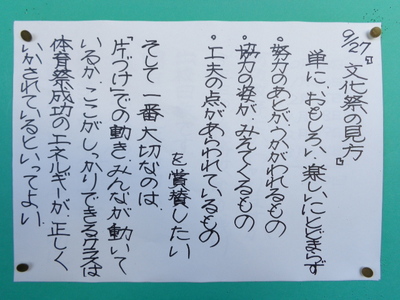 9/27『文化祭の見方』
単に、おもしろい・楽しいにとどまらず
・努力のあとがうかがわれるもの
・協力の姿が、みえてくるもの
・工夫の点があらわれているもの
を賞賛したい
そして一番大切なのは、
「片づけ」での動き。みんなが動いて
いるか、ここがしっかりできるクラスは
体育祭成功のエネルギーが、正しく
いかされているといってよい。